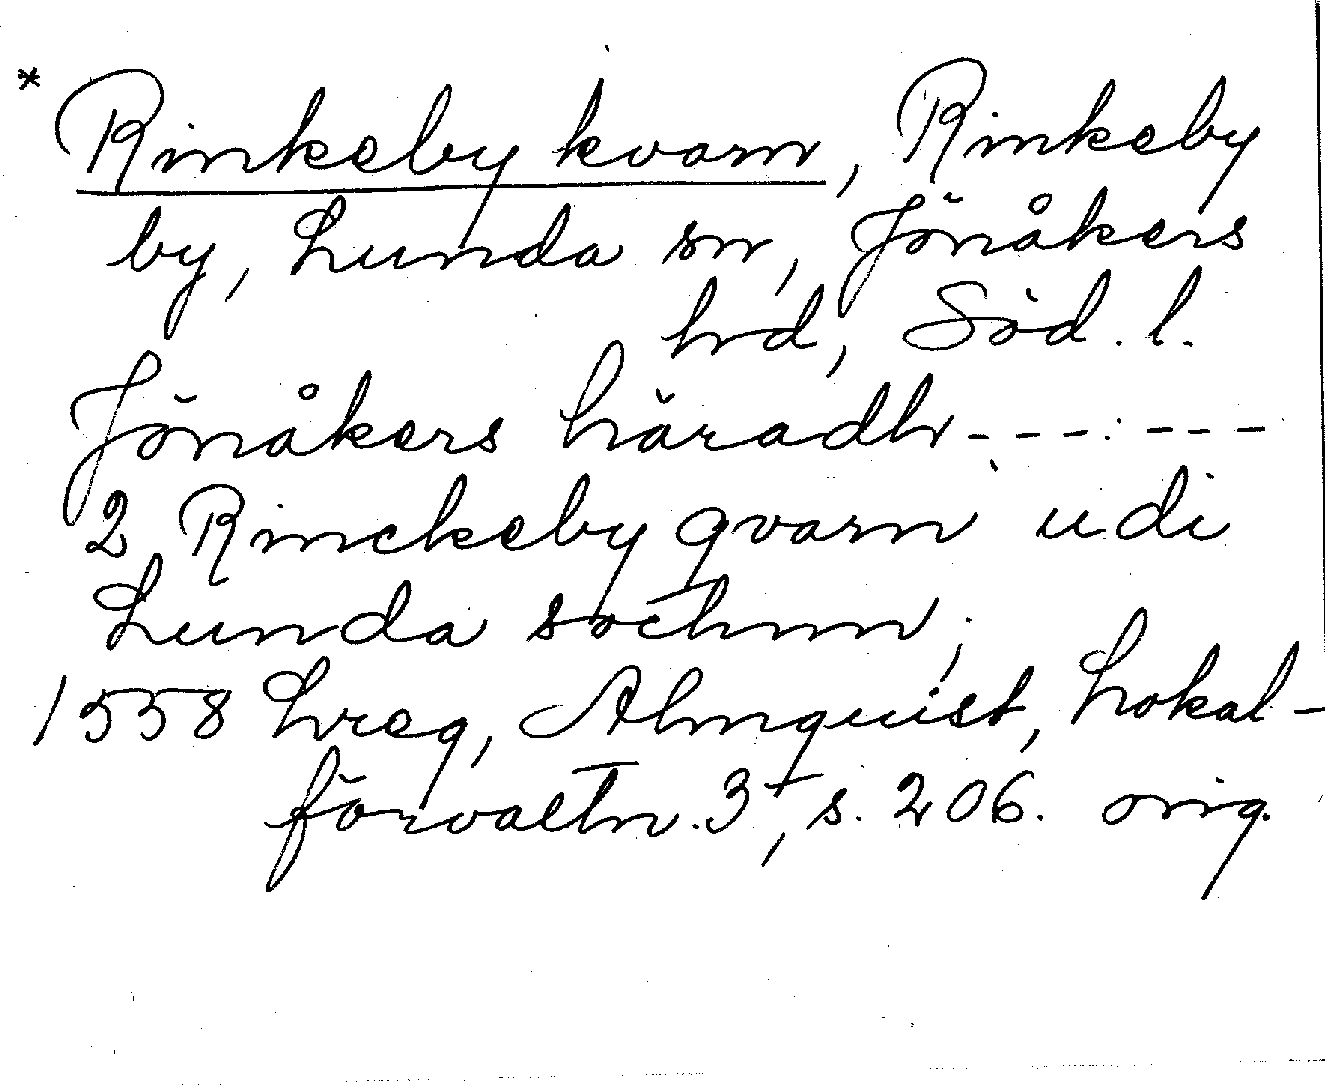 * Rinkeby kvarn, Rinkeby
by, Lunda sn, Jönåkers
hd, Söd. l.
Jönåkers häradh - - - - - -
2 Rinckeby qvarn udi
Lunda sochnn,
1558 Lreg, Almquist, Lokal-
förvaltn. 3, s. 206. orig.